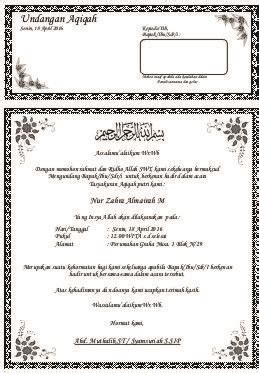 Undangan Aqiqah
Senin, 18 April 2016
Kepada Yth,
Bapak/Ibu/Sdr/i :
بسم الله الرحمن الرحيم
Assalamu'alaikum Wr.Wb
Dengan memohon rahmat dan Ridho Allah SWT, kami sekeluarga bermaksud
Mengundang Bapak/Ibu/Sdr/i untuk berkenan hadir dalam acara
Tasyakuran Aqiqah putri kami :
Nur Zahra Almairah M
Yang Insya Allah akan dilaksanakan pada :
Hari/Tanggal : Senin, 18 April 2016
Pukul : 12.00 WITA s.d selesai
Alamat : Perumahan Graha Nusa 1 Blok N/29
Merupakan suatu kehormatan bagi kami sekeluarga apabila Bapak/Ibu/Sdr/I berkenan
hadir untuk bersama dalam acara tersebut.
Atas kehadirannya di rahasia, kami ucapkan terimah kasih.
Wassalamu'alaikum Wr.Wb.
Hormat kami,
Abd. Muthalib,ST / Syamsuriah,S.Si-P